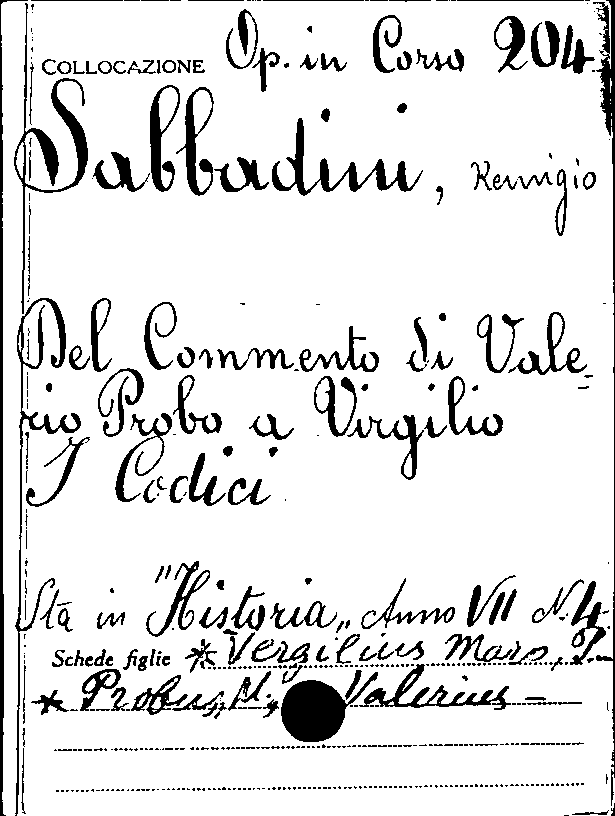 COLLOCAZIONE Op. in Corso 204
Sabbadini, Remigio
Del Commento di Vale=
rio Probo a Virgilio
I Codici
Sta in "Historia„ Anno VII N. 4
Schede figlie * Vergilius Maro, P.
* Probus, M. Valerius -